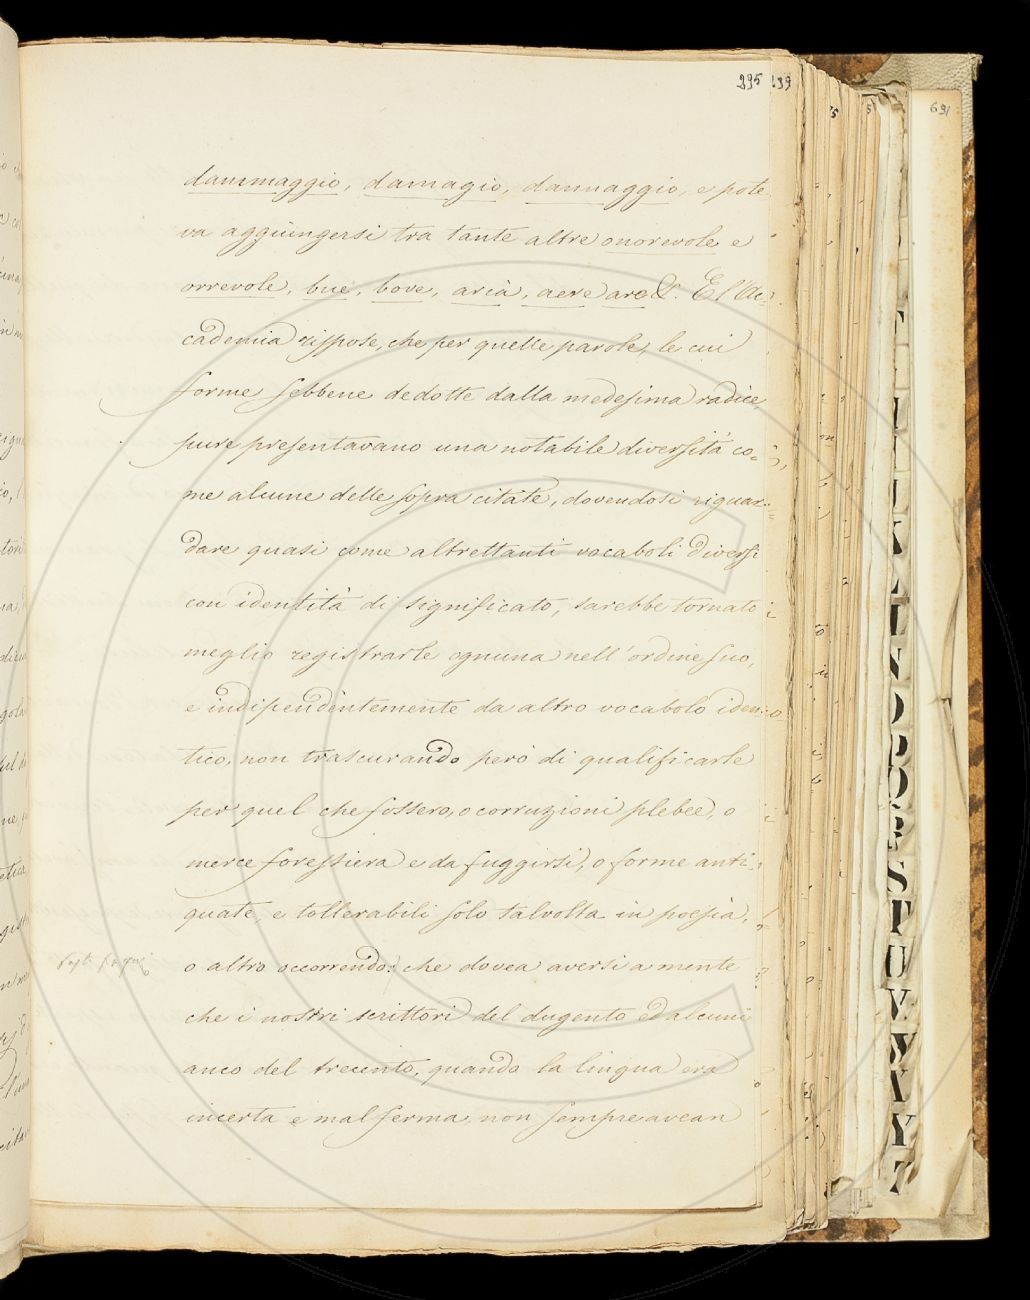 295
139
75
5
691
dammaggio, damagio, dannaggio, e pote
va aggiungersi tra tante altre onorevole e
orrevole, bue, bove, aria, aere are &. E l'Ac=
cademia rispose, che per quelle parole, le cui
forme sebbene dedotte dalla medesima radice,
pure presentavano una notabile diversità co=
me alcune delle sopra citate, dovendosi riguar=
dare quasi come altrettanti vocaboli diversi
con identità di significato, sarebbe tornato
meglio registrarle ognuna nell'ordine suo,
e indipendentemente da altro vocabolo iden=
tico, non trascurando però di qualificarle
per quel che fossero, o corruzioni plebee, o
merce forestiera e da fuggirsi, o forme anti=
quate, e tollerabili solo talvolta in poesia,
o altro occorrendo: che dovea aversi a mente
che i nostri scrittori del dugento ed alcuni
anco del trecento, quando la lingua era
incerta e mal ferma, non sempre avean